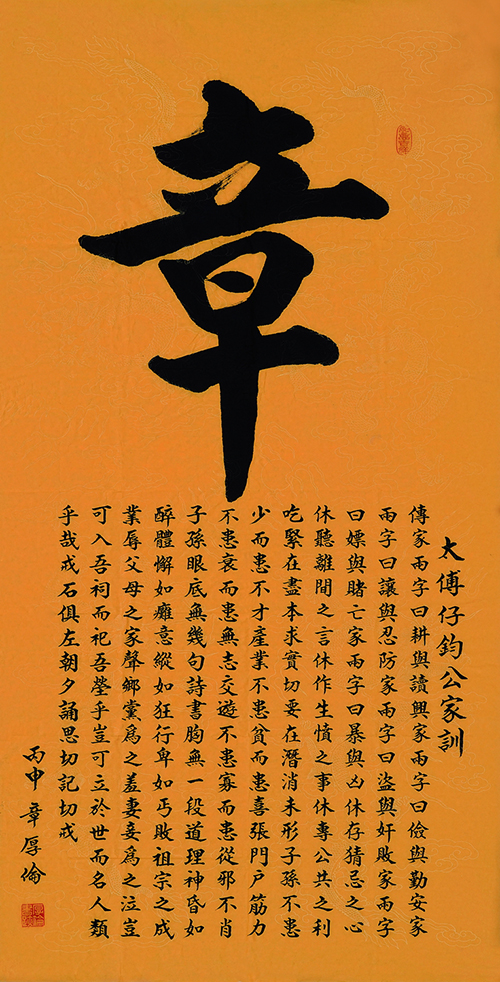 章
太傅仔鈞公家訓
傳家兩字曰耕與讀興家兩字曰儉與勤安家
兩字曰讓與忍防家兩字曰盜與奸敗家兩字
曰嫖與賭亡家兩字曰暴與凶休存猜忌之心
休聽離間之言休作生憤之事休專公共之利
吃緊在盡本求實切要在潛消未形子孫不患
少而患不才產業不患貧而患喜張門戶筋力
不患衰而患無志交遊不患寡而患從邪不肖
子孫眼底無幾句詩書胸無一段道理神昏如
醉體懈如癱意縱如狂行卑如丐敗祖宗之成
業辱父母之家聲鄉黨為之羞妻妾為之泣豈
可入吾祠而祀吾塋乎豈可立於世而名人類
乎哉戒石俱左朝夕誦思切記切戒
丙申 章厚倫